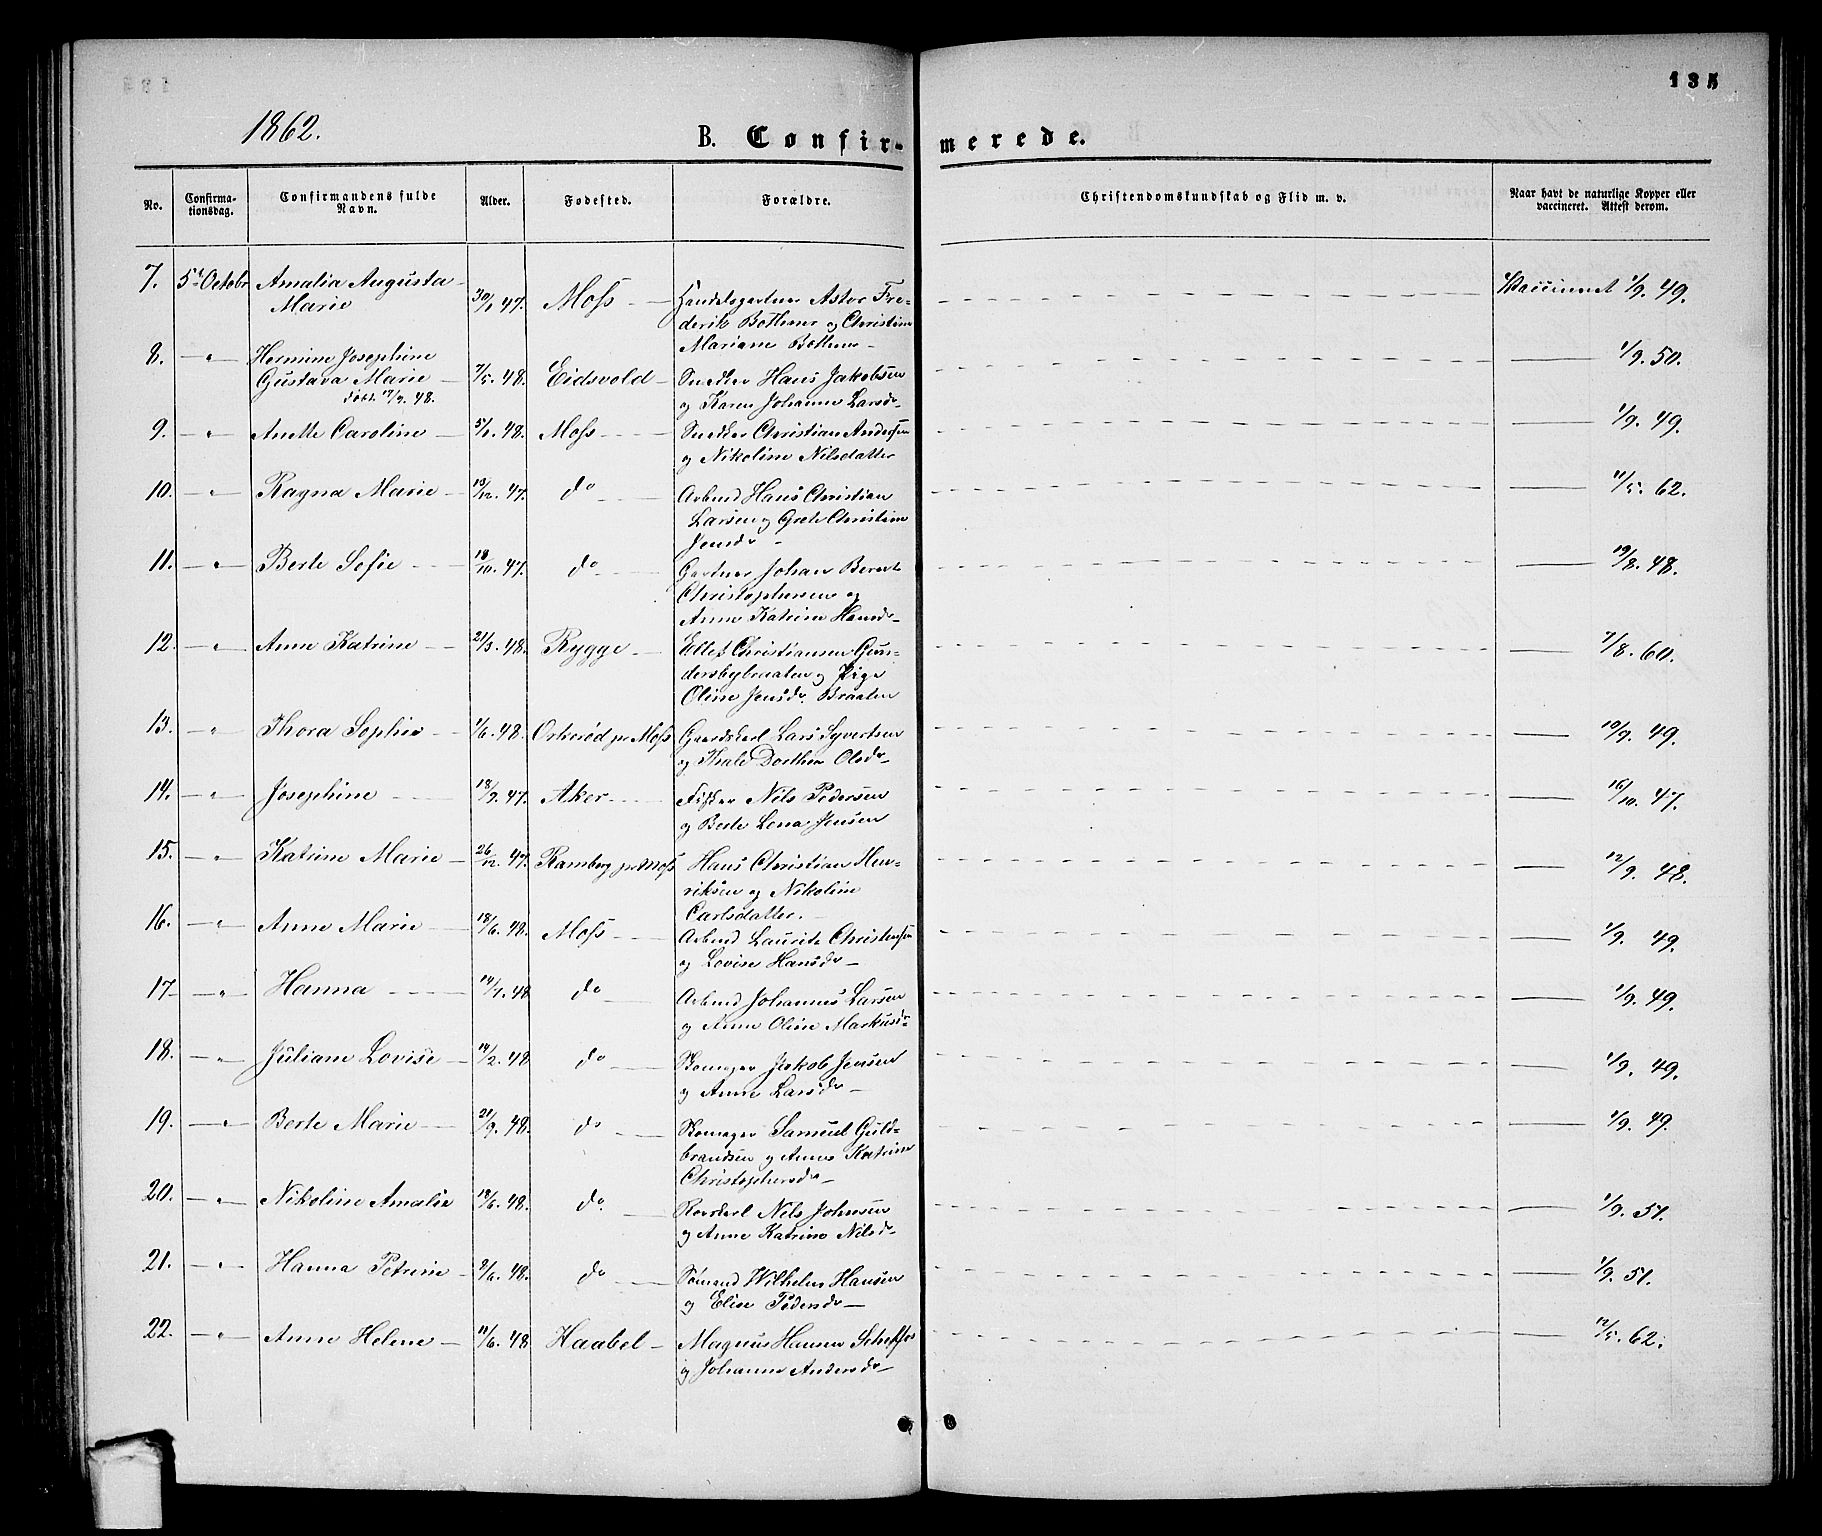 135
1862.
B. Confirmerede.
No. Confirmationsdag. Confirmandens fulde Navn. Alder. Fødested. Forældre. Christendomskundskab og Flid m. v. Naar havt de naturlige Kopper eller vaccineret. Attest derom.
7. 5t Octobr Amalia Augusta Marie 30/1 47. Moss Handelsgartner Astor Fre-
derik Bothner og Christine
Mariane Vaccineret 1/9. 49.
8. " Hermine Josephine
Gustava Marie 7/5. 48. Eidsvold Snedker Hans Jakobsen
døbt 17/9. 48. og Karen Johanne Larsdr 1/9. 50.
9. " Anette Caroline 5/1. 48. Moss Snedker Christian Andersen
og Nikoline Nilsdatter 1/9. 49.
10. " Ragna Marie 13/12. 47. do Arbmd Hans Christian
Larsen og Grete Christine
Jensdr 11/5. 62.
11. " Berte Sofie 18/10. 47. do Gartner Johan Berent
Christophersen og
Anne Katrine Hansdr 19/8. 48.
12. " Anne Katrine 21/3. 48. Rygge Ellef Christiansen Gun-
dersbybraaten og Pige
Oline Jensdr. Braaten 7/8. 60.
13. " Thora Sophie 1/6. 48. Orkerød pr Moss Gaardskarl Lars Syvertsen
og Dorthea Olsdr 10/9. 49.
14. " Josephine 18/9. 47. Aker Fisker Nils Pedersen
og Berte Lena Jensen 16/10. 47.
15. " Katrine Marie 26/12. 47. Ramberg pr Moss Hans Christian Hen-
riksen og Nikoline
Carlsdatter. 12/9. 48.
16. " Anne Marie 18/6. 48. Moss Arbmd Laurits Christensen
og Lovise Hansdr 1/9. 49.
17. " Hanna 14/7. 48 do Arbmd Johannes Larsen
og Anne Oline Markusdr 1/9. 49.
18. " Juliane Lovise 14/2. 48 do Skomager Jakob Jensen
og Anne Larsdr 1/9. 49.
19. " Berte Marie 21/9. 48. do Skomager Samuel Guld-
brandsen og Anne Katrine
Christophersdr 1/9. 49.
20. " Nikoline Amalie 18/6. 48. do. Nils Johnsen
og Anne Katrine Nilsdr 1/9. 51.
21. " Hanna Petrine 2/6. 48. do Sømand Wilhelm Hansen
og Elise Pedersdr 1/9. 51.
22. " Anne Helene 11/6. 48 Haabel Magnus Hansen
og Johanne Andersdr 12/5. 62.